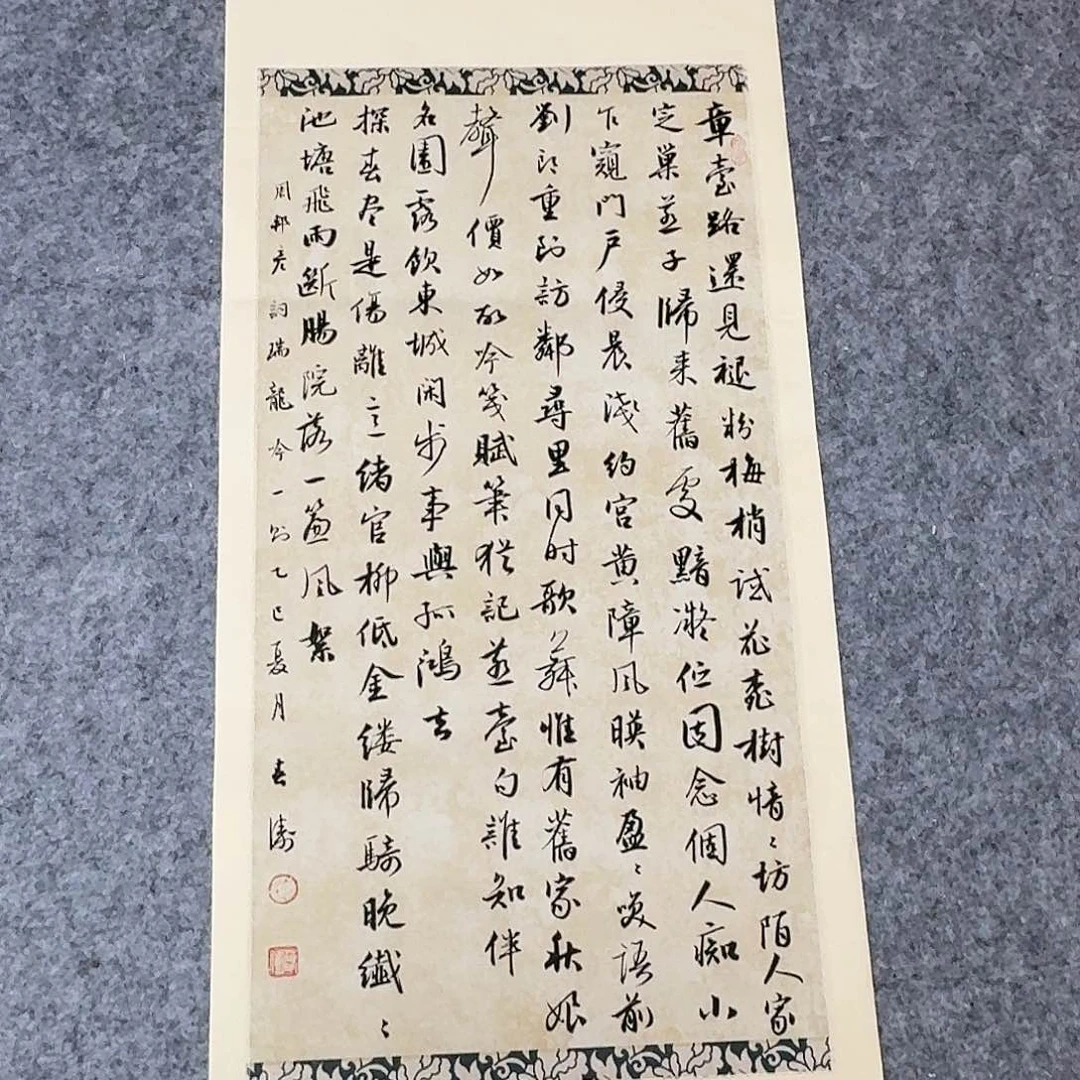 章臺路還見褪粉梅梢試花桃樹愔〻坊陌人家
定巢燕子歸来舊處黯凝佇因念個人痴小
乍窺門户侵晨淺約宮黄障風暎袖盈〻笑語前
劉郎重到訪鄰尋里同时歌舞惟有舊家秋娘
聲價如故吟箋賦筆猶記燕臺句誰知伴
名園露飲東城闲步事與孤鴻去
探春尽是傷離意緒官柳低金缕歸騎晚纖〻
池塘飛雨斷腸院落一簾風絮
周邦彦詞瑞龍吟一則乙巳夏月 春濤